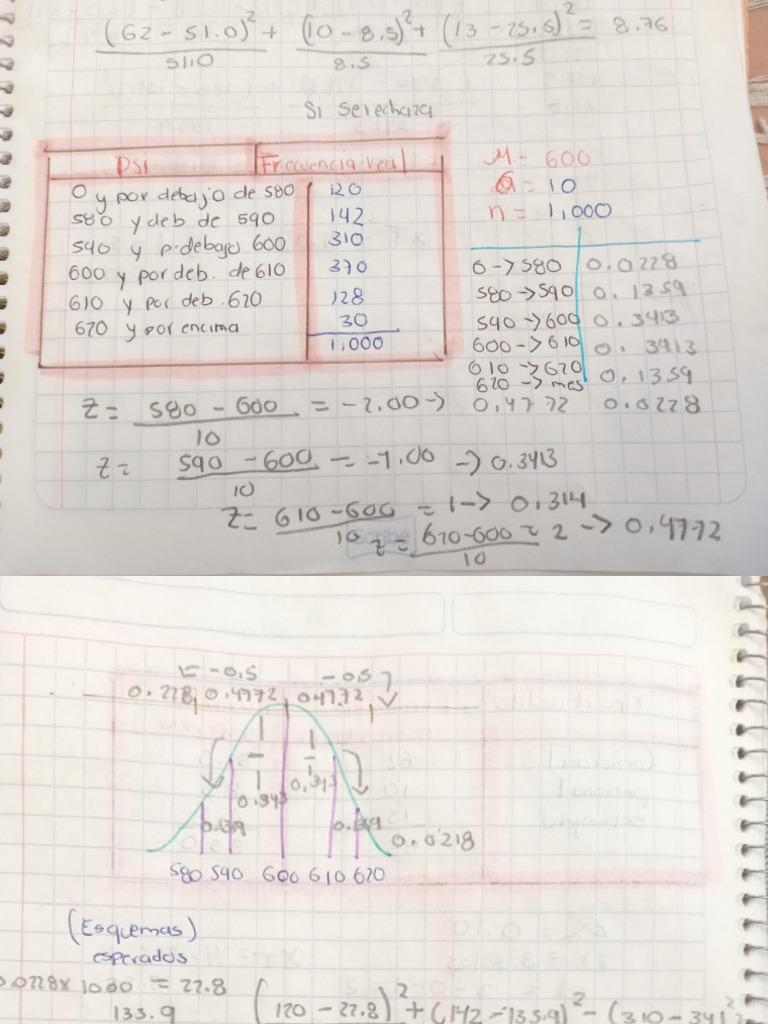 (62 - 51.0)² + (10 - 8.5)² + (13 - 25.5)² = 8.76
51.0 8.5 25.5
Si Se rechaza
PSI Frecuencia real
0 y por debajo de 580 120
580 y deb de 590 142
590 y p. debajo 600 310
600 y por deb. de 610 370
610 y por deb. 620 128
620 y por encima 30
1,000
M = 600
σ = 10
n = 1,000
0 -> 580 0.0228
580 -> 590 0.1359
590 -> 600 0.3413
600 -> 610 0.3413
610 -> 620 0.1359
620 -> mas 0.0228
Z = 580 - 600 = -2.00 -> 0.4772
10
Z = 590 - 600 = -1.00 -> 0.3413
10
Z = 610 - 600 = 1 -> 0.314
10
Z = 620 - 600 = 2 -> 0.4772
10
Scribe
-0.5 -0.5
0.228 0.4772 0.4772
0.343 0.343
0.139 0.139 0.0218
580 590 600 610 620
(Esquemas)
esperados
0.0228 x 1000 = 22.8
135.9 (120 - 22.8)² + (142 - 135.9)² - (310 - 341)²